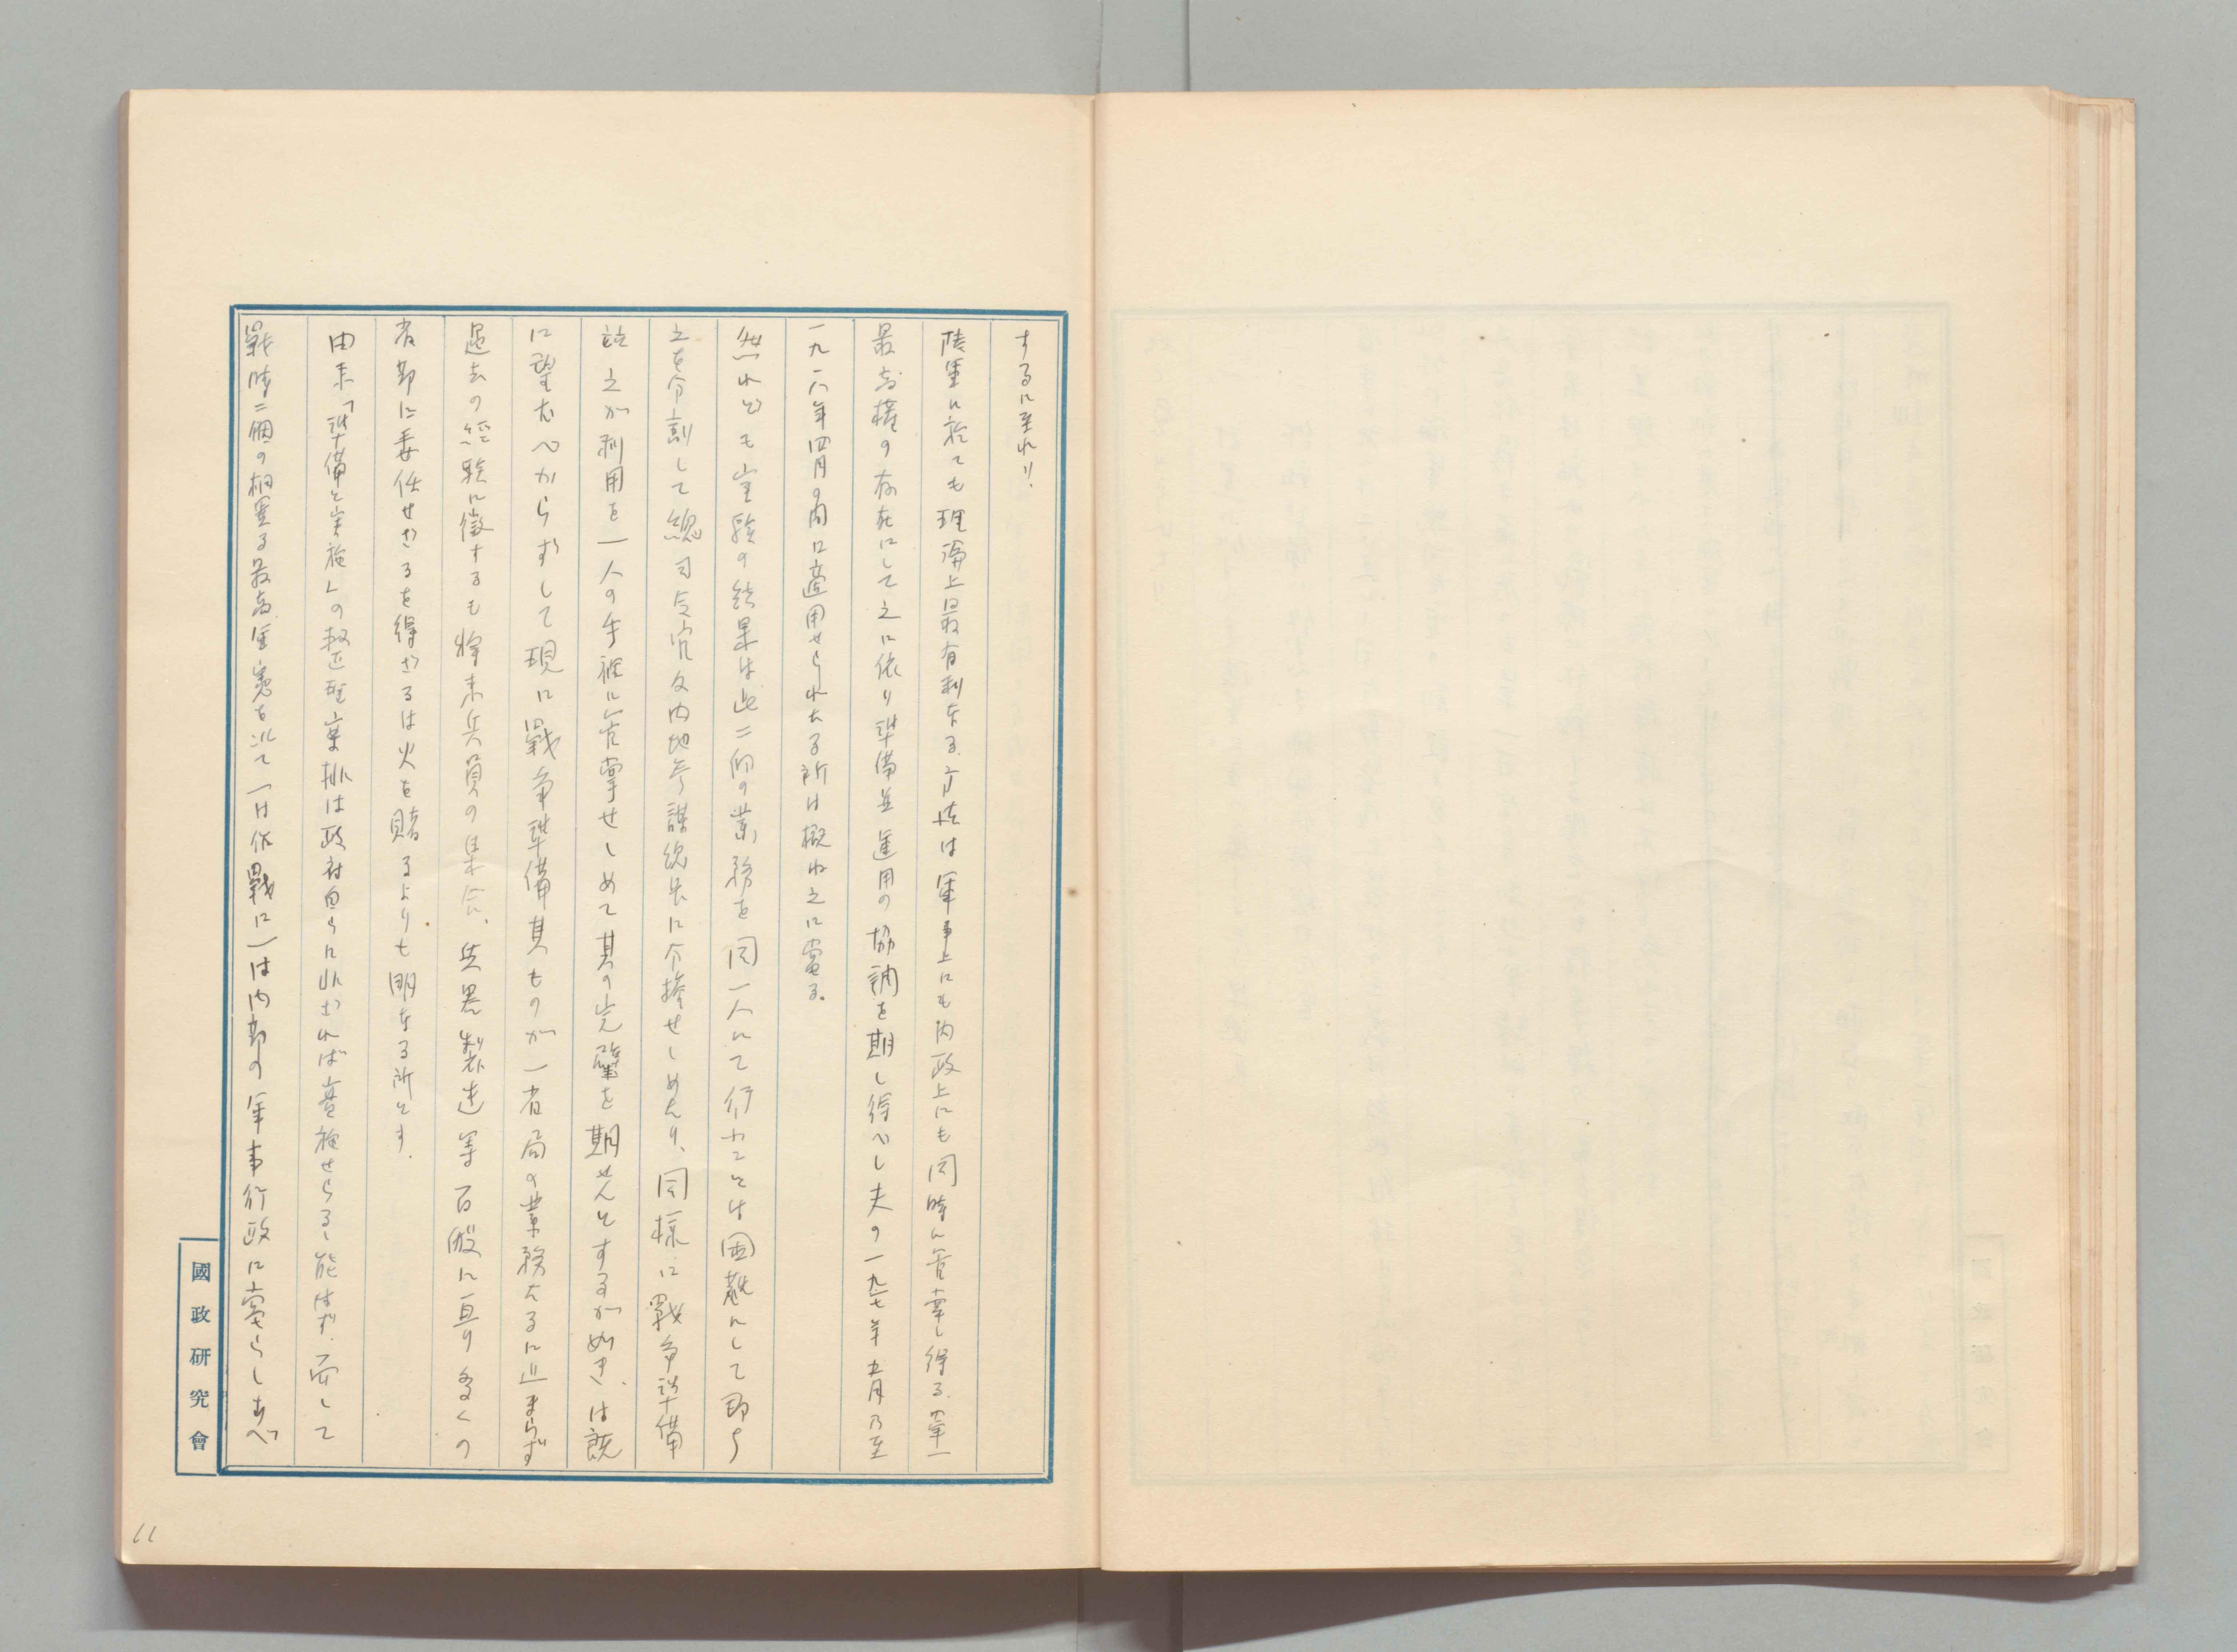 するに至れり.
陸軍に於ても理論上最有利なる方法は軍事上にも内政上にも同時に管掌し得る単一
最高権の存在にして之に依り準備並運用の協調を期し得べし夫の一九一七年五月乃至
一九一八年四月の間に適用せられたる所は概ね之に当る.
然れども実験の結果は此二個の業務を同一人にて行ふことは困難にして即ち
之を分割して総司令官及内地参謀総長に分担せしめたり、同様に戦争準備
並之が利用を一人の手裡に管掌せしめて其の完璧を期せんとするが如きは既
に望むべからずして現に戦争準備其ものが一省局の業務たるに止まらず
過去の経験に徴するも将来兵員の集合、兵器製造等百般に亘り多くの
省部に委任せざるを得ざるは火を睹るよりも明なる所とす.
由来「準備と実施」の 按排は政府自らに非ざれば実施せらるゝ能はず.而して
戦時二個の相異る最高軍憲を以て一は作戦に一は内部の軍事行政に当らしむべ
國政研究會
11